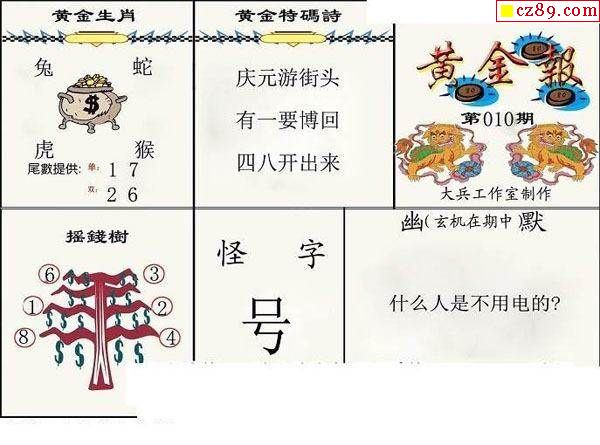 cz89.com
黄金生肖
兔 蛇
$
虎 猴
尾數提供: 单: 1 7
双: 2 6
黄金特碼詩
庆元游街头
有一要博回
四八开出来
黄金報
第010期
大兵工作室制作
摇錢樹
⑥ ③
① ②
⑧ ④
$ $ $ $ $ $ $ $ $ $
怪 字
号
幽(玄机在期中)默
什么人是不用电的?